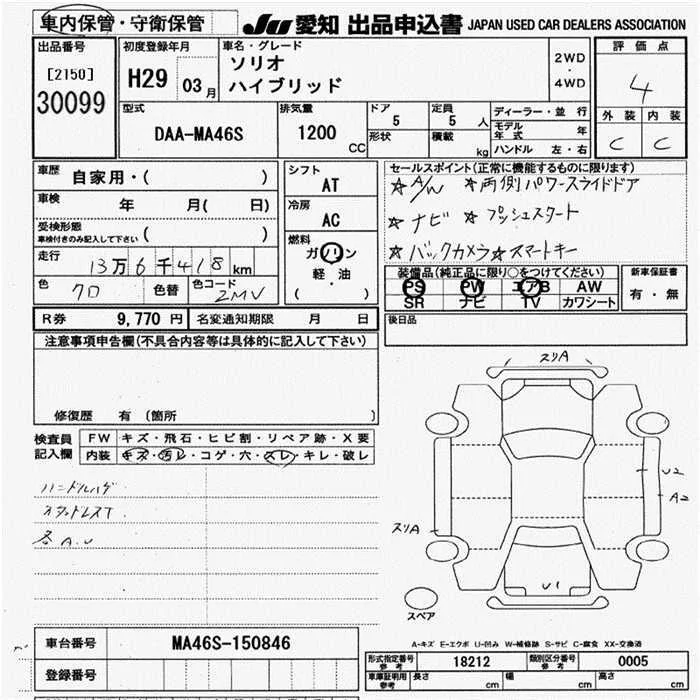 車内保管・守衛保管 JU 愛知 出品申込書 JAPAN USED CAR DEALERS ASSOCIATION
出品番号 初度登録年月 車名・グレード 2WD・4WD 評価点
[2150] 30099 H29 03月 ソリオ ハイブリッド 4
型式 排気量 ドア 定員 ディーラー・並行 外装 内装
DAA-MA46S 1200 CC 5 5人 モデル年式 C C
形状 積載 kg ハンドル 左・右
車歴 自家用・( ) シフト AT セールスポイント(正常に機能するものに限ります)
車検 年 月( 日) 冷房 AC ☆A/W ☆両側パワースライドドア
受検形態 車検付きのみ記入して下さい ( ) ☆ナビ ☆プッシュスタート
燃料 ガソリン 軽・油 ( ) ☆バックカメラ☆スマートキー
走行 13万6千418km 装備品(純正品に限り○をつけてください) 新車保証書
色 クロ 色替 色コード ZMV PS PW エアB AW 有・無
SR ナビ TV カワシート
R券 9,770円 名変通知期限 月 日 後日品
注意事項申告欄(不具合内容等は具体的に記入して下さい)
修復歴 有 (箇所 )
検査員記入欄 FW キズ・飛石・ヒビ割・リペア跡・X要
内装 キズ・汚レ・コゲ・穴・スレ・キレ・破レ
ハンドルハゲ
スタットレスT
各A.U
スリA
U2
A2
スリA
U1
スペア
A-キズ E-エクボ U-凹み W-補修跡 S-サビ C-腐食 XX-交換済
車台番号 MA46S-150846
形式指定番号 参考 18212 類別区分番号 参考 0005
登録番号
車庫証明用 参考 長さ cm 幅 cm 高さ cm